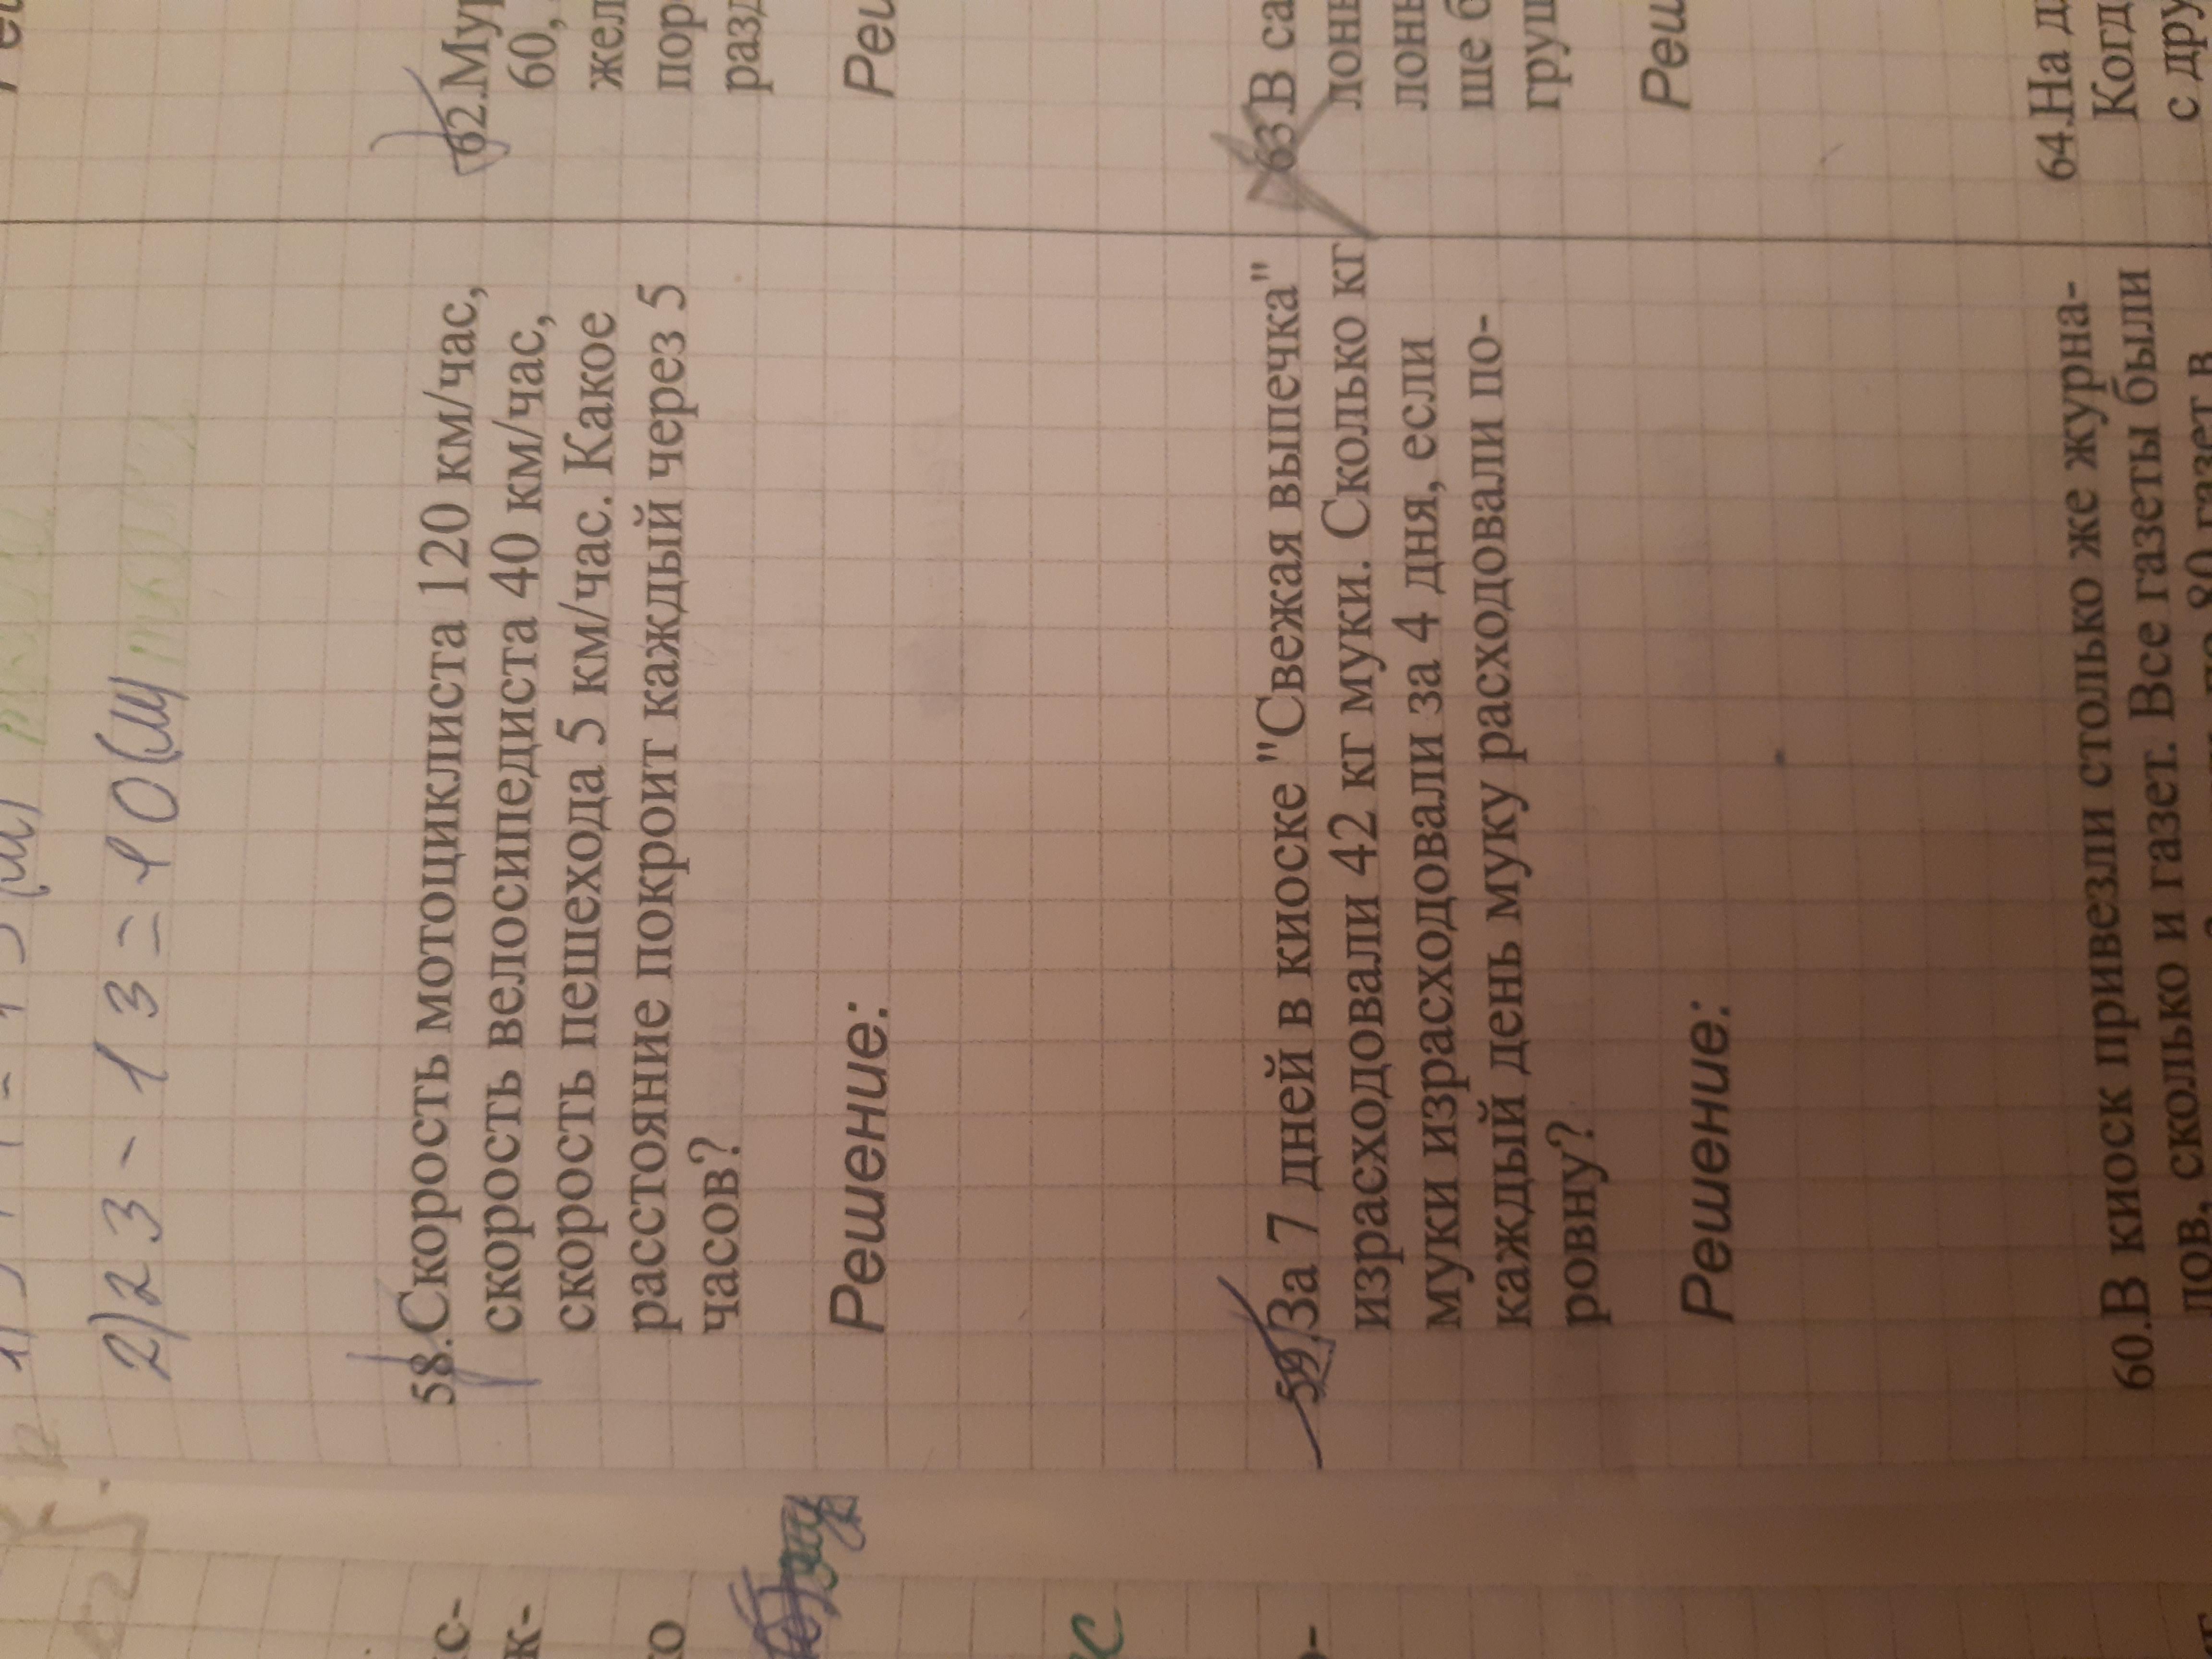 2) 23 - 13 = 10 (ш)
58. Скорость мотоциклиста 120 км/час,
скорость велосипедиста 40 км/час,
скорость пешехода 5 км/час. Какое
расстояние покроит каждый через 5
часов?
Решение:
59. За 7 дней в киоске "Свежая выпечка"
израсходовали 42 кг муки. Сколько кг
муки израсходовали за 4 дня, если
каждый день муку расходовали по-
ровну?
Решение:
60. В киоск привезли столько же журна-
лов, сколько и газет. Все газеты были
80 газет в
62. Мур
60,
жел
пор
разд
Реш
63. В са
лон
лон
ше б
груш
Реш
64. На д
Когд
с дру